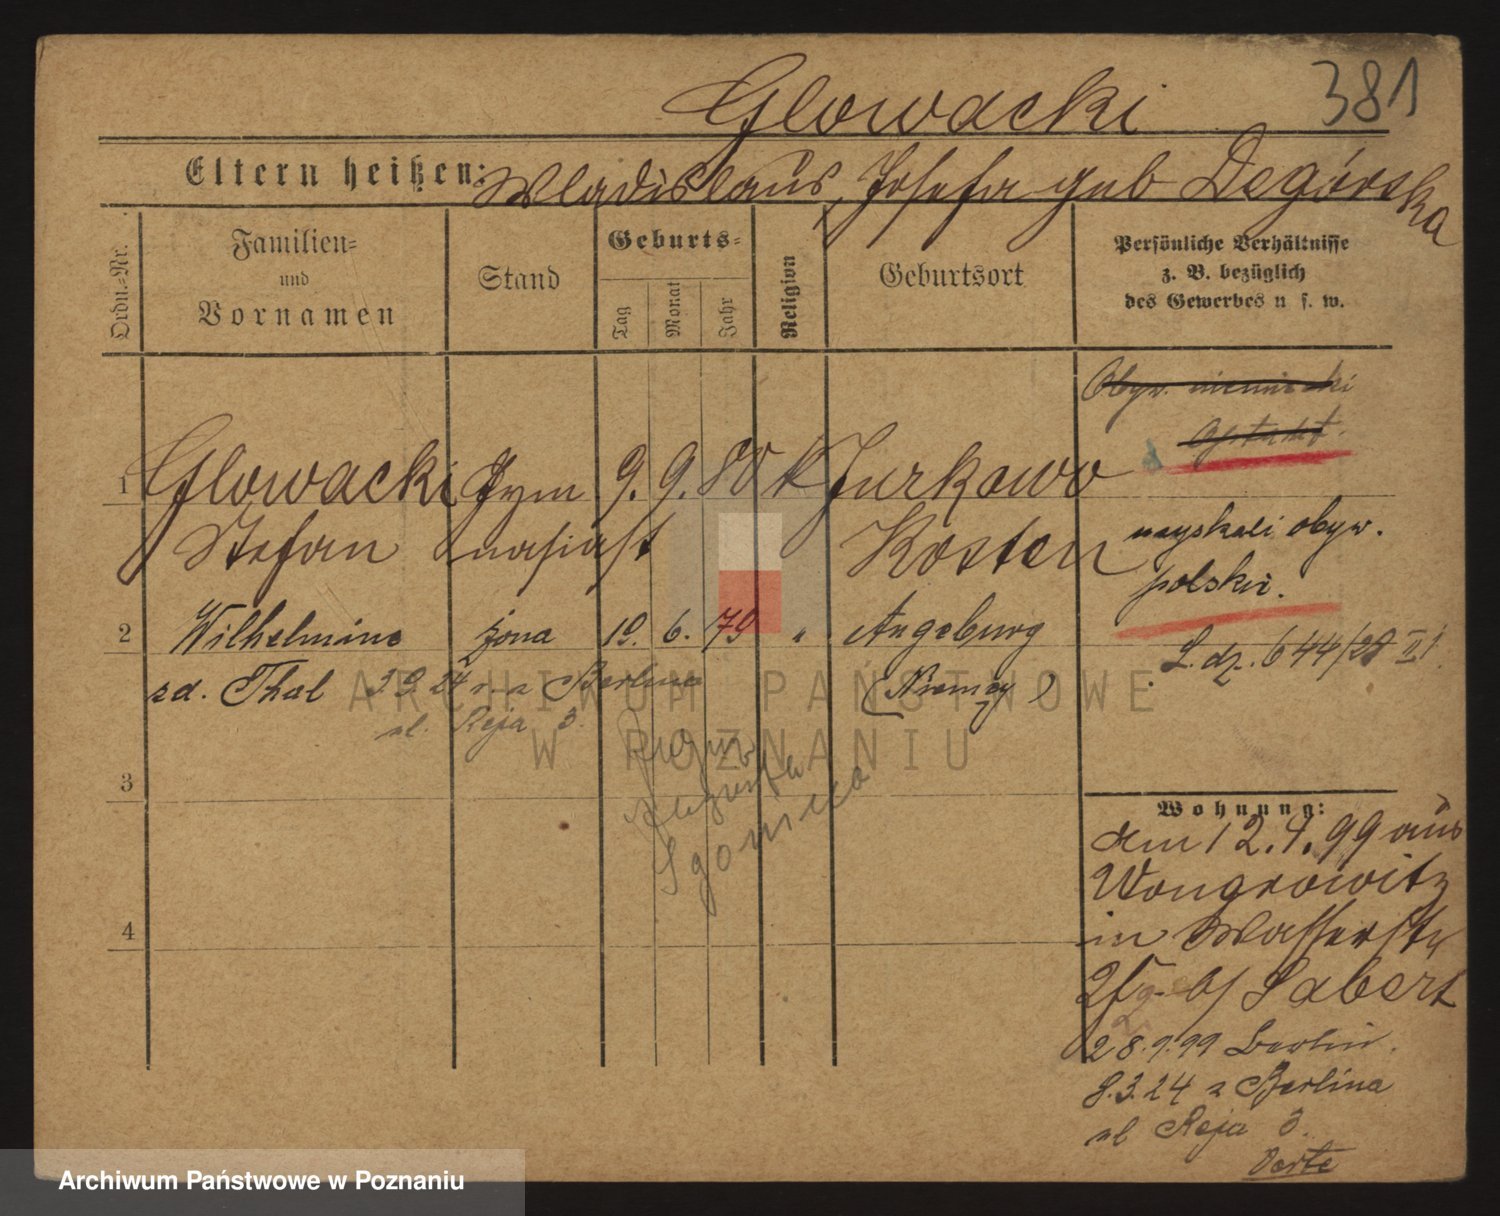 381
Glowacki
Eltern heißen: Wladislaus, Josefa geb Degórska
Ordn.-Nr.
Familien-
und
Vornamen
Stand
Geburts-
Tag
Monat
Jahr
Religion
Geburtsort
Persönliche Verhältnisse
z. B. bezüglich
des Gewerbes u s. w.
Obyw. niemiecki
1 Glowacki Gym 9. 9. 80 k Jurkowo
Stefan nasiast Kosten
uzyskali obyw.
polskie.
L. dz. 644/
2 Wilhelmine żona 19. 6. 79 " Angeburg
zd. Thal (Niemcy)
3 9 24 z Berlina
ul. Reja 3.
3
4
Wohnung:
am 12.4.99 aus
Wongrowitz
in Wasserstr
b/ Labert
28.9.99 Berlin.
8.3.24 z Berlina
ul Reja 3.
ARCHIWUM PAŃSTWOWE
W POZNANIU
Archiwum Państwowe w Poznaniu